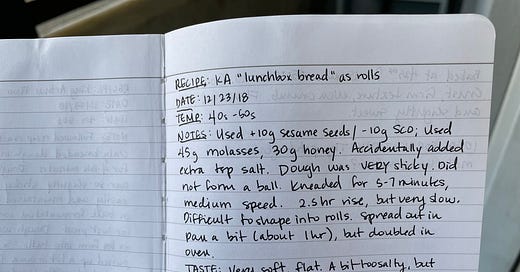 RECIPE: KA "lunchbox bread" as rolls
DATE: 12/23/18
TEMP: 40s-50s
NOTES: Used +10g sesame seeds/ -10g SCO; Used
45g molasses, 30g honey. Accidentally added
extra tsp salt. Dough was VERY sticky. Did
not form a ball. Kneaded for 5-7 minutes,
medium speed. 2.5 hr rise, but very slow.
Difficult to shape into rolls. Spread out in
pan a bit (about 1hr), but doubled in
oven.
TASTE: Very soft, flat. A bit too salty, but